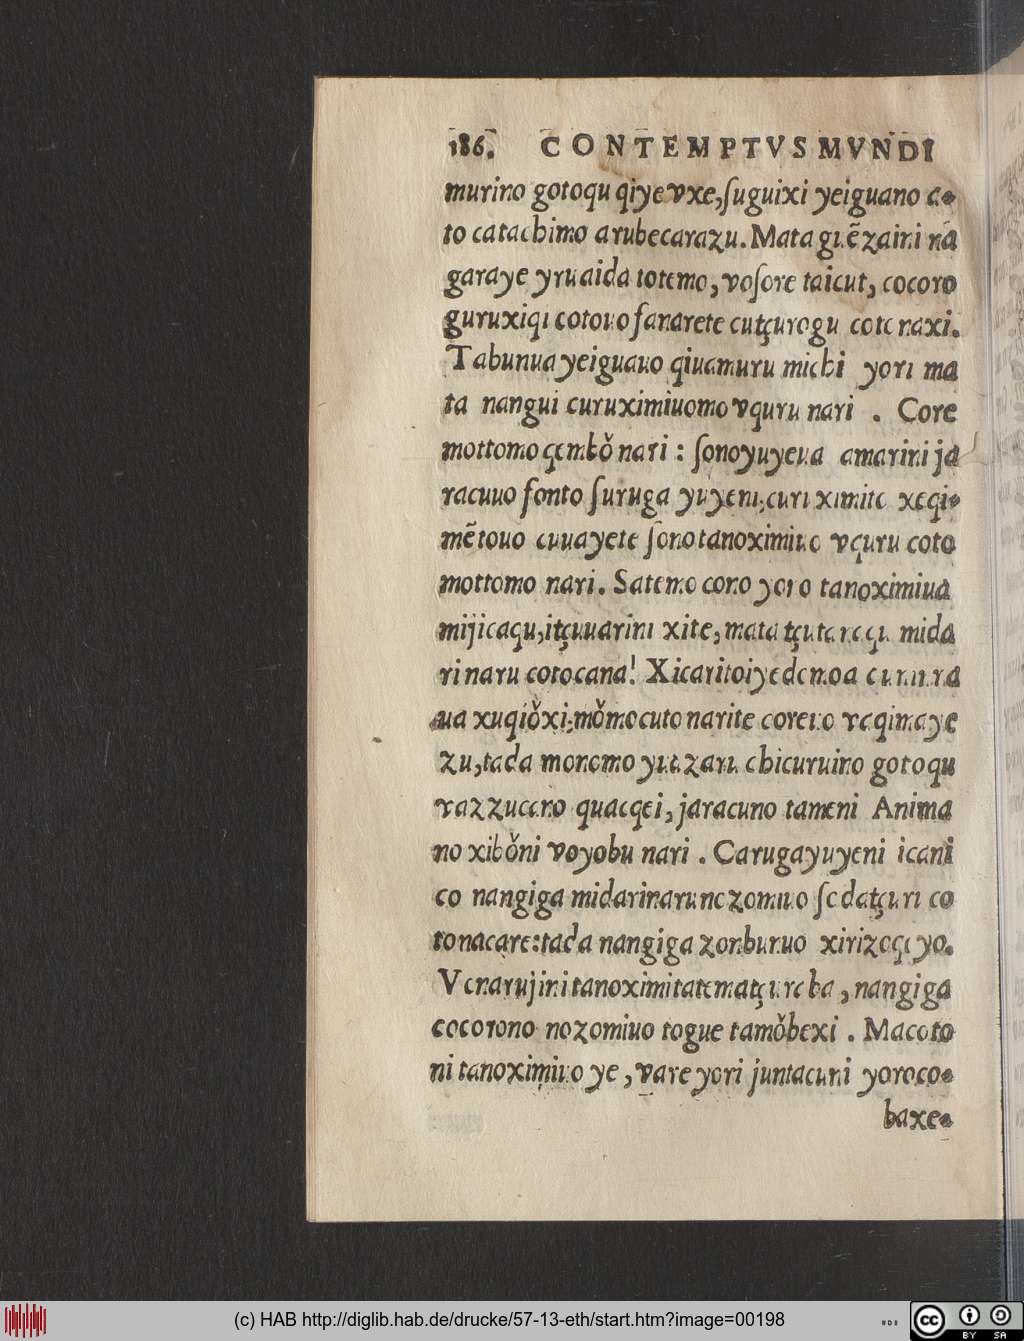 186. CONTEMPTVS MVNDI
murino gotoqu qiye vxe, ſuguixi yeiguano co-
to catachimo arubecarazu. Mata guẽzaini nã
garaye yru aida totemo, voſore taicut, cocoro
guruxiqi cotouo fanarete cutçurogu coto naxi.
Tabunua yeiguauo qiuamuru michi yori ma
ta nangui curuximiuomo vquru nari . Core
mottomo qenbǒ nari : ſonoyuyeua amarini ja
racuuo fonto ſuruga yuyeni, curuximite xeqi-
mẽtouo cuuayete ſono tanoximiuo vquru coto
mottomo nari. Satemo cono yono tanoximiua
mijicaqu, itçuuarini xite, mata tçutanaqu mida
rinaru cotocana! Xicaritoiyedomoa cununa
ua xuqiǒxi, mǒmocuto narite coreuo vaqimaye
zu, tada monomo yuazaru chicuruino gotoqu
vazzucano quacqei, jaracuno tameni Anima
no xibǒni voyobu nari . Carugayuyeni icani
co nangiga midarinaru nozomiuo ſodatçuru co
tonacare: tada nangiga zonbunuo xirizoqeyo.
Venarujini tanoximitatematçuraba , nangiga
cocorono nozomiuo togue tamǒbexi . Macoto
ni tanoximiuo ye , vare yori juntacuni yoroco-
baxe-
(c) HAB http://diglib.hab.de/drucke/57-13-eth/start.htm?image=00198
cc BY SA